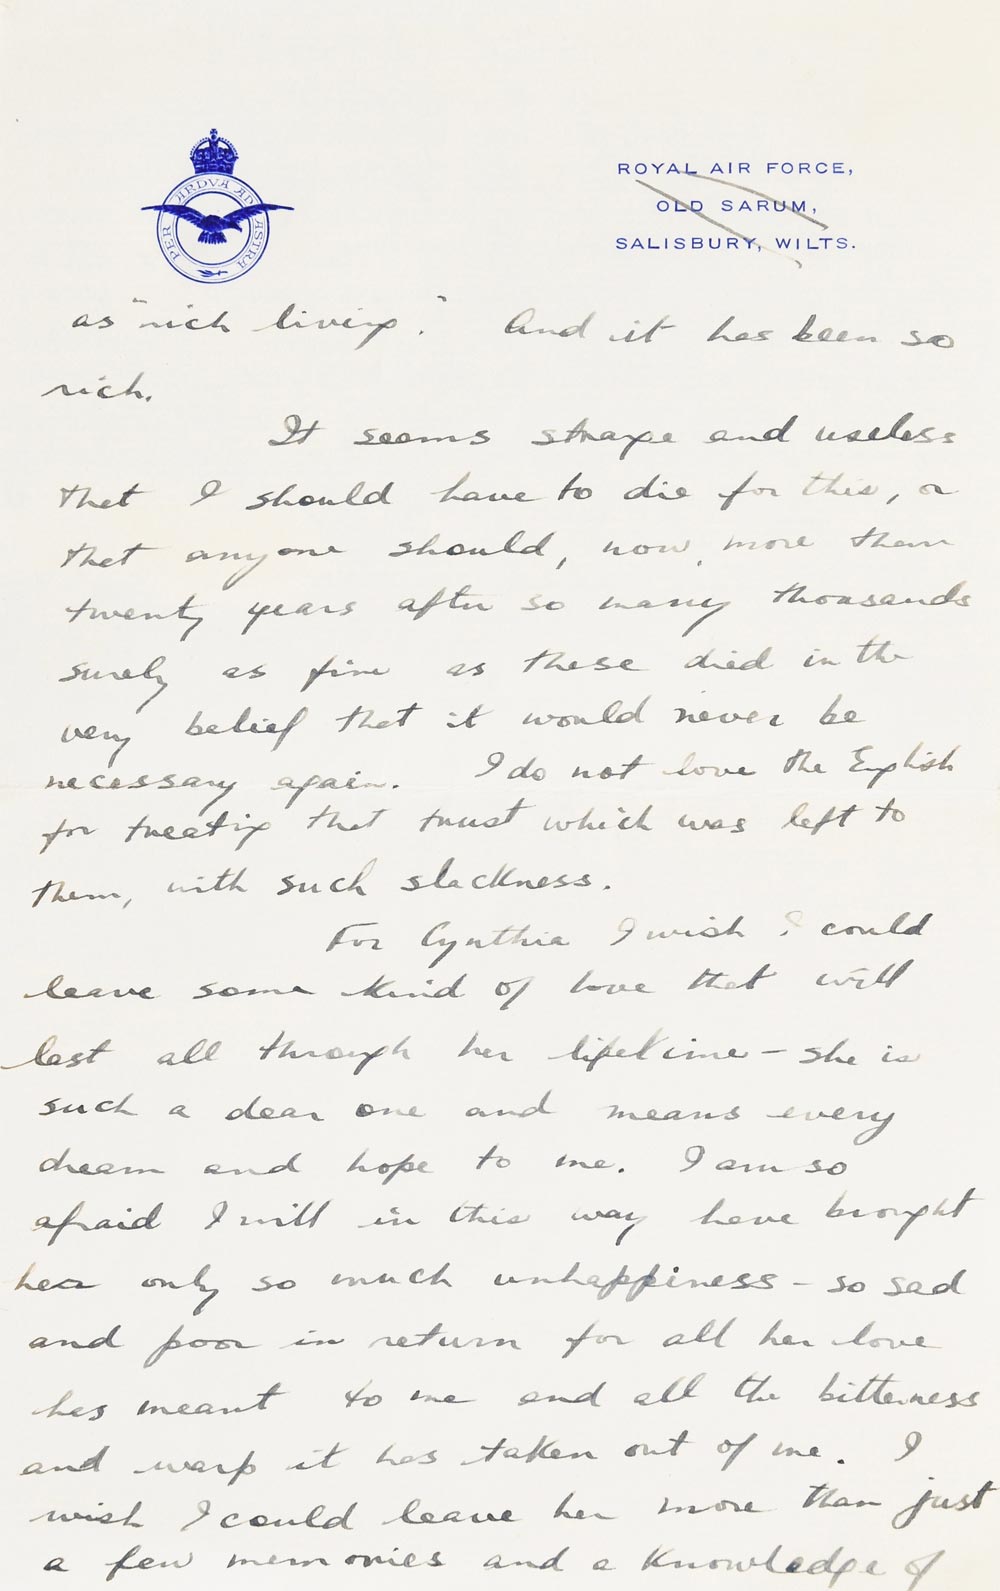 PER ARDVA AD ASTRA
ROYAL AIR FORCE,
OLD SARUM,
SALISBURY, WILTS.
as "rich living." And it has been so
rich.
It seems strange and useless
that I should have to die for this, or
that anyone should, now, more than
twenty years after so many thousands
surely as fine as these died in the
very belief that it would never be
necessary again. I do not love the English
for treating that trust which was left to
them, with such slackness.
For Cynthia I wish I could
leave some kind of love that will
last all through her lifetime - she is
such a dear one and means every
dream and hope to me. I am so
afraid I will in this way have brought
her only so much unhappiness - so sad
and poor in return for all her love
has meant to me and all the bitterness
and warp it has taken out of me. I
wish I could leave her more than just
a few memories and a knowledge of